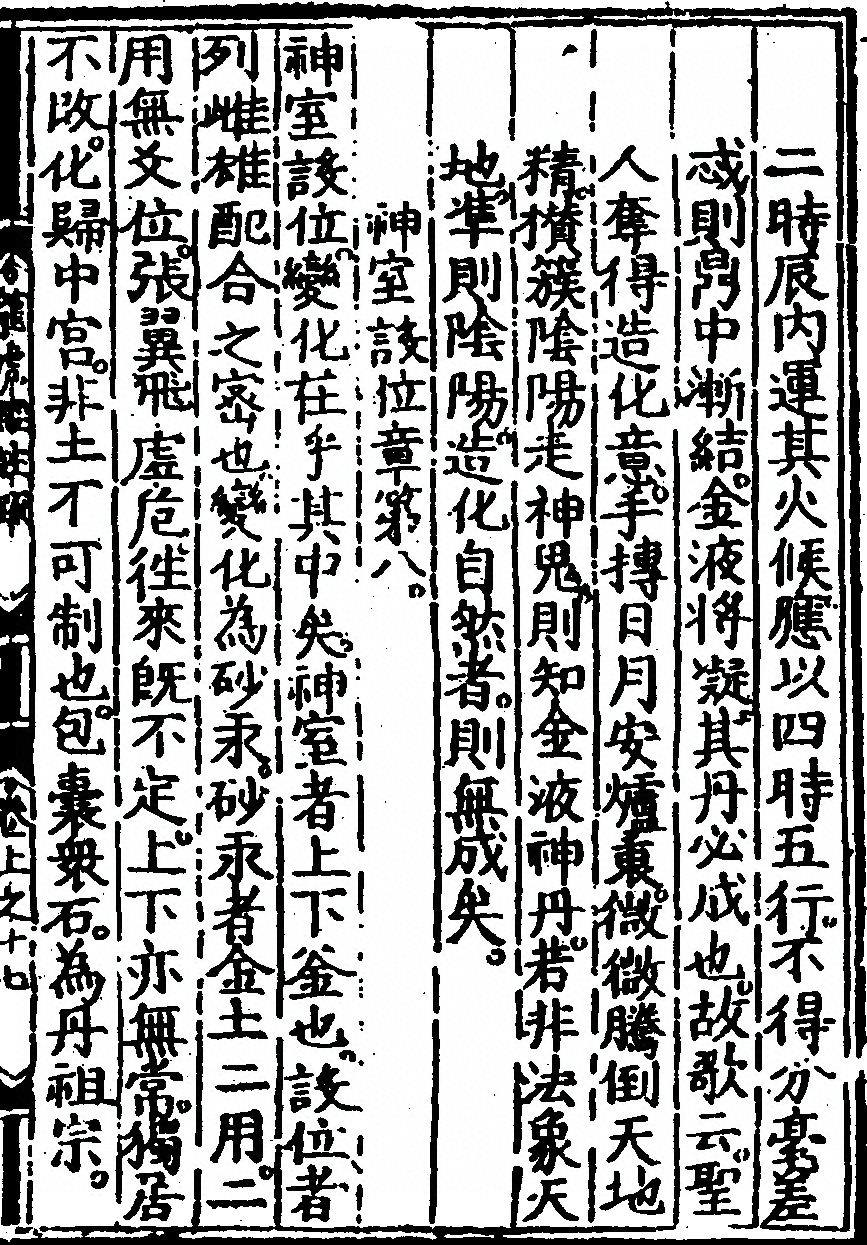 二時辰內運其火候應以四時五行不得分毫差
忒則鼎中漸結金液將凝其丹必成也故歌云聖
人奪得造化意手摶日月安爐裏微微騰倒天地
精攅簇陰陽走神鬼則知金液神丹若非法象天
地準則陰陽造化自然者則無成矣
神室設位章第八
神室設位變化在乎其中矣神室者上下釜也設位者
列雌雄配合之密也變化為砂汞砂汞者金土二用二
用無爻位張翼飛虛危徃來既不定上下亦無常獨居
不改化歸中宮非土不可制也包囊衆石為丹祖宗
合龍虎經註䟽 卷上之十七